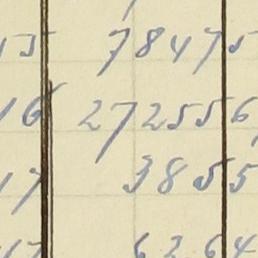 15 78475
16 272556
17 3855
6264